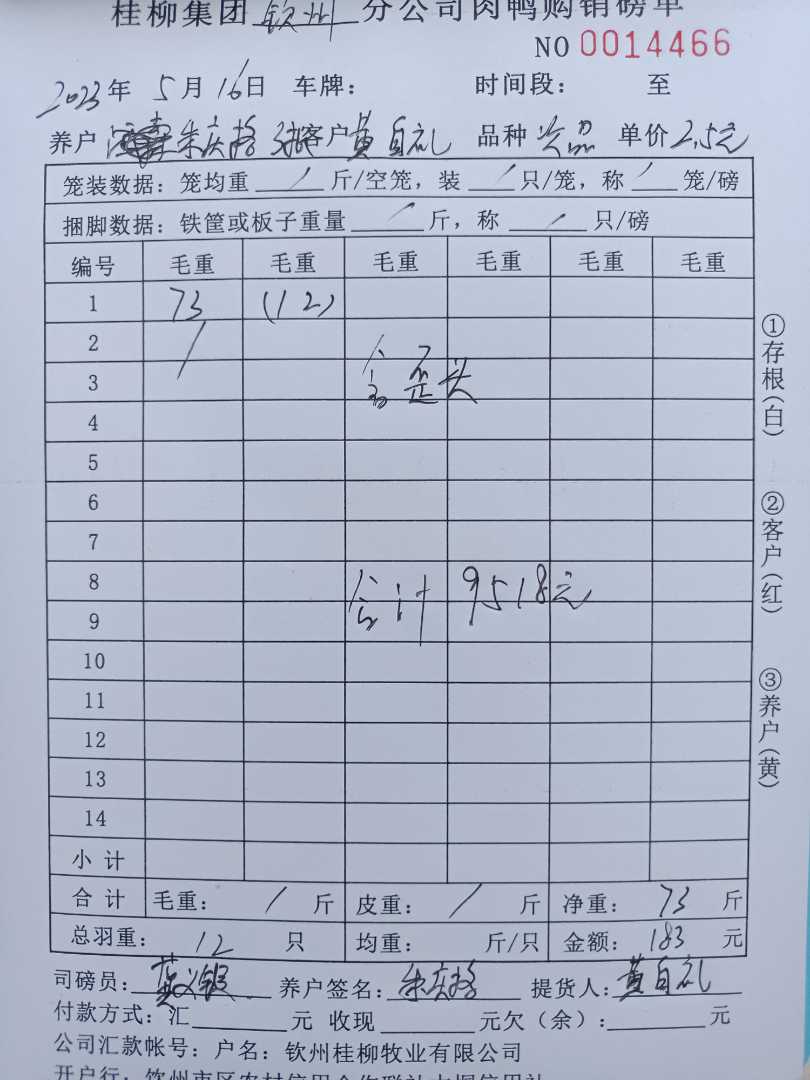 桂柳集团 钦州 分公司肉鸭购销磅单
NO 0014466
2023年 5月16日 车牌： 时间段： 至
养户 朱庆格 客户 黄自礼 品种 次品 单价 2.5元
笼装数据：笼均重 / 斤/空笼，装 / 只/笼，称 / 笼/磅
捆脚数据：铁筐或板子重量 / 斤，称 / 只/磅
编号 毛重 毛重 毛重 毛重 毛重 毛重
1 73 (12)
2 /
3 含歪头
4
5
6
7
8 合计 9518元
9
10
11
12
13
14
小计
合计 毛重： / 斤 皮重： / 斤 净重： 73 斤
总羽重： 12 只 均重： 斤/只 金额： 183 元
司磅员： 黄义银 养户签名： 朱庆格 提货人： 黄自礼
付款方式：汇 元 收现 元欠（余）： 元
公司汇款帐号：户名：钦州桂柳牧业有限公司
开户行：钦州市区农村信用合作联社大垌信用社
①存根(白)
②客户(红)
③养户(黄)